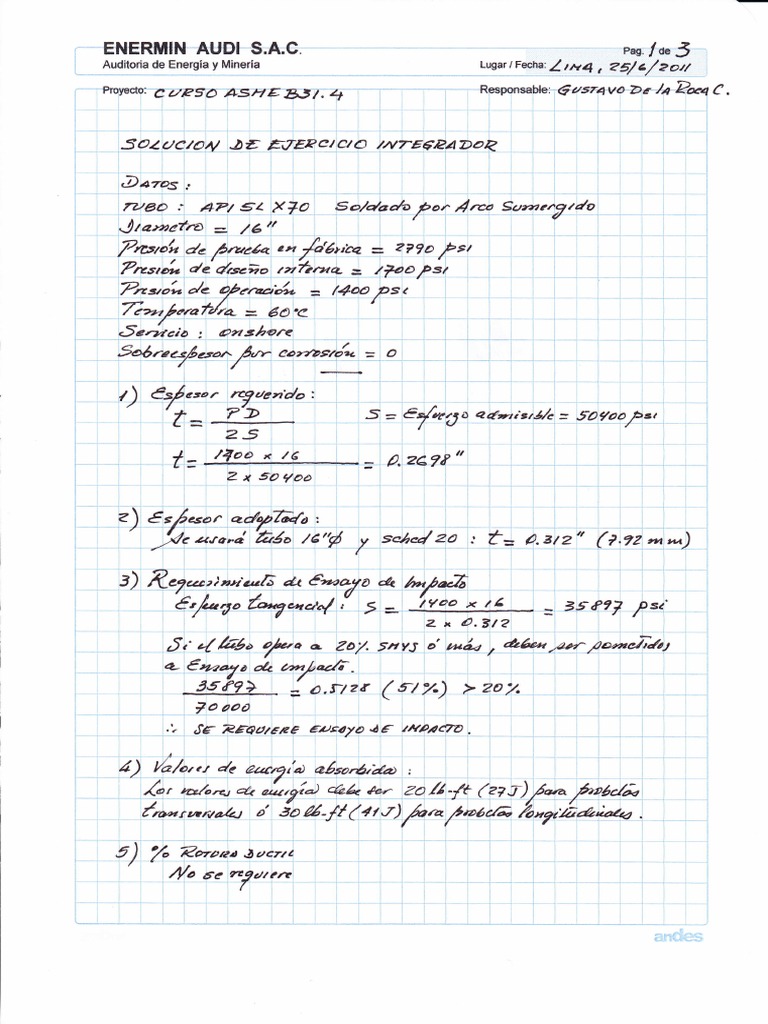 ENERMIN AUDI S.A.C.
Pag. 1 de 3
Auditoria de Energía y Minería
Lugar / Fecha: LIMA, 25/6/2011
Proyecto: CURSO ASME B31.4
Responsable: GUSTAVO DE LA ROCA C.
SOLUCION DE EJERCICIO INTEGRADOR
DATOS:
TUBO: API 5L X70 Soldado por Arco Sumergido
Diametro = 16"
Presión de prueba en fábrica = 2790 psi
Presión de diseño interna = 1700 psi
Presión de operación = 1400 psi
Temperatura = 60°C
Servicio: onshore
Sobreespesor por corrosión = 0
1) Espesor requerido:
t = PD / 2S S = Esfuerzo admisible = 50400 psi
t = 1700 x 16 / 2 x 50400 = 0.2698"
2) Espesor adoptado:
Se usará tubo 16"Ø y sched 20 : t = 0.312" (7.92 mm)
3) Requerimiento de Ensayo de Impacto
Esfuerzo tangencial: S = 1400 x 16 / 2 x 0.312 = 35897 psi
Si el tubo opera a 20% SMYS ó más, deben ser sometidos
a Ensayo de impacto.
35897 / 70000 = 0.5128 (51%) > 20%
∴ SE REQUIERE ENSAYO DE IMPACTO.
4) Valores de energía absorbida:
Los valores de energía debe ser 20 lb-ft (27J) para probetas
transversales ó 30 lb-ft (41J) para probetas longitudinales.
5) % ROTURA DUCTIL
No se requiere
andes